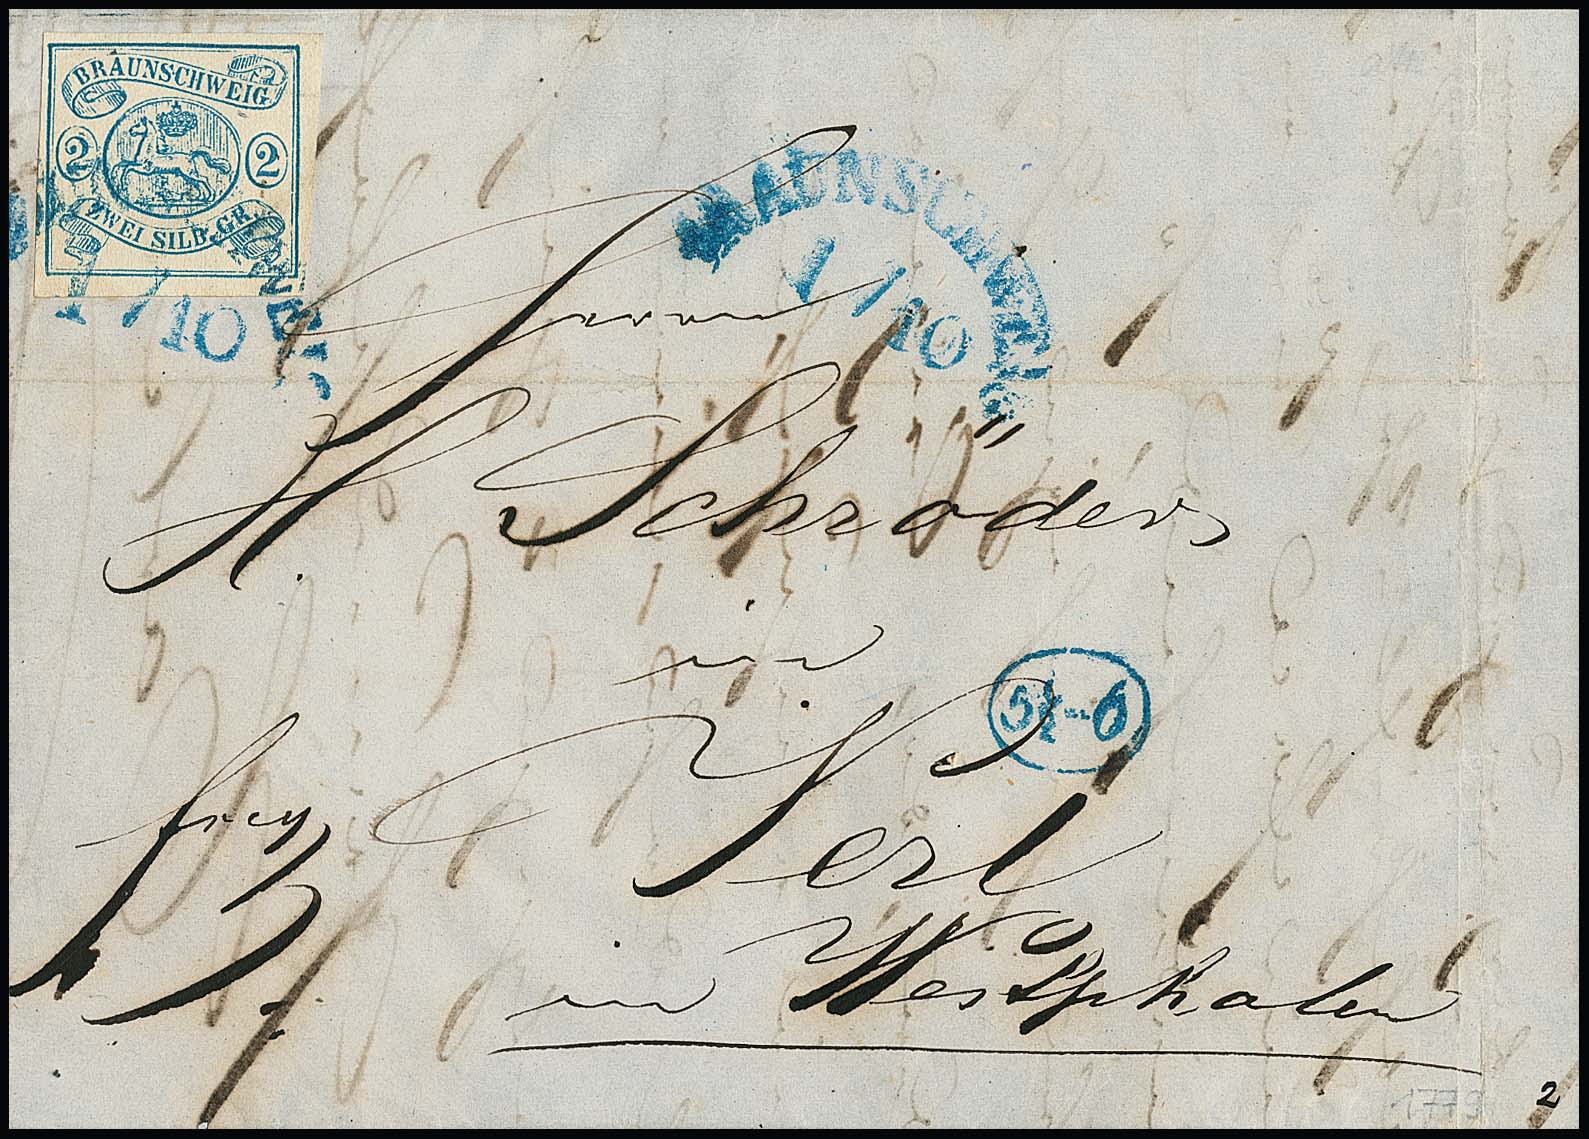 BRAUNSCHWEIG
2 2
ZWEI SILB.GR.
1/10
BRAUNSCHWEIG
1/10
Herrn
H. Schröder
in
5½-6
Verl
frey
in Westphalen
1779
2